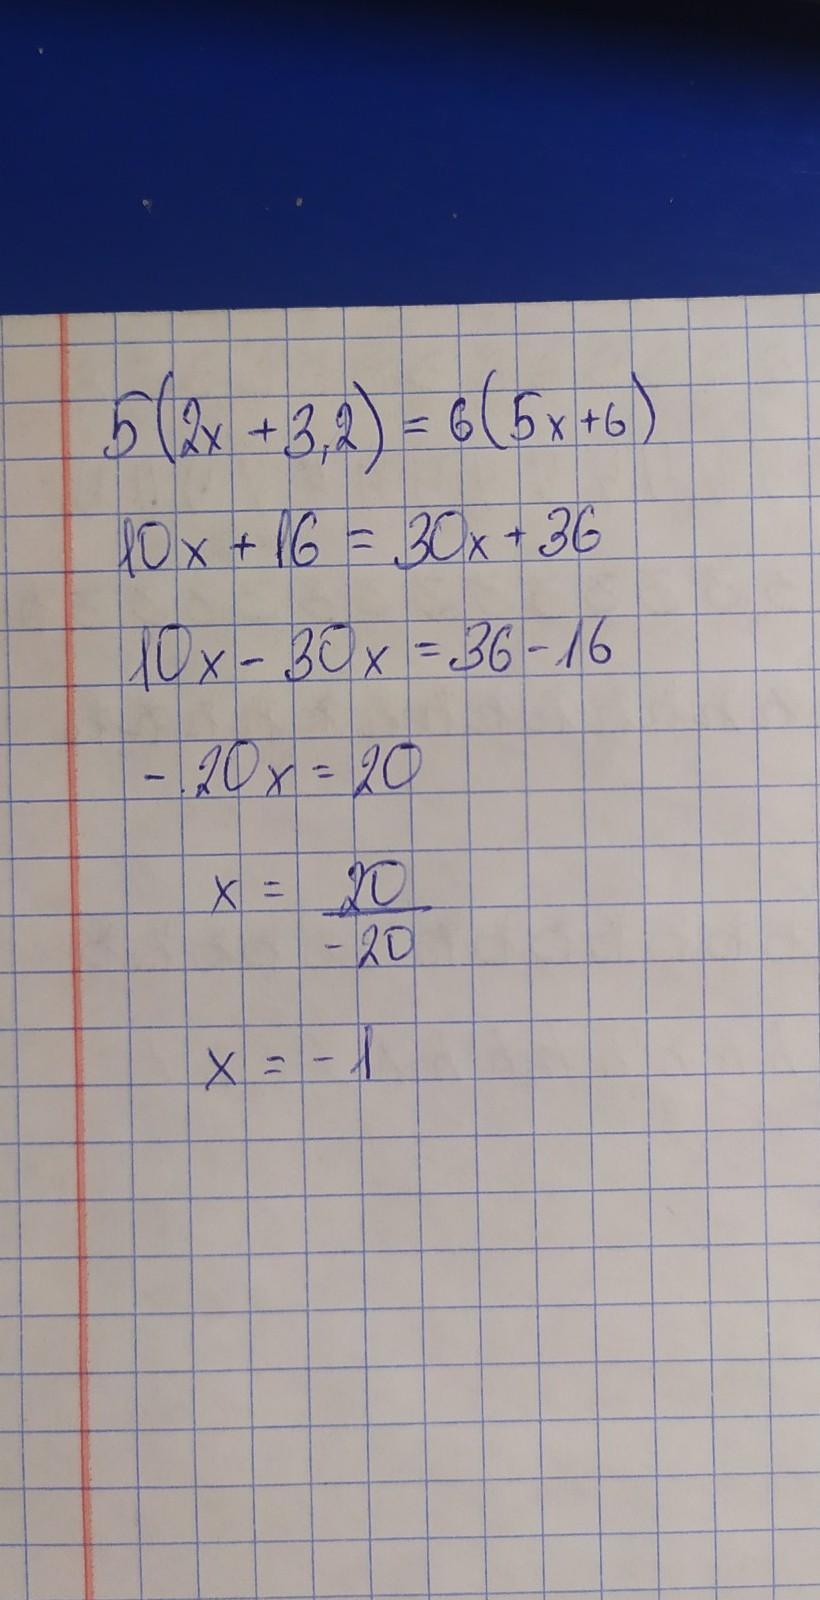 5(2x + 3,2) = 6(5x+6)
10x + 16 = 30x + 36
10x - 30x = 36 - 16
- 20x = 20
x = 20/-20
x = - 1